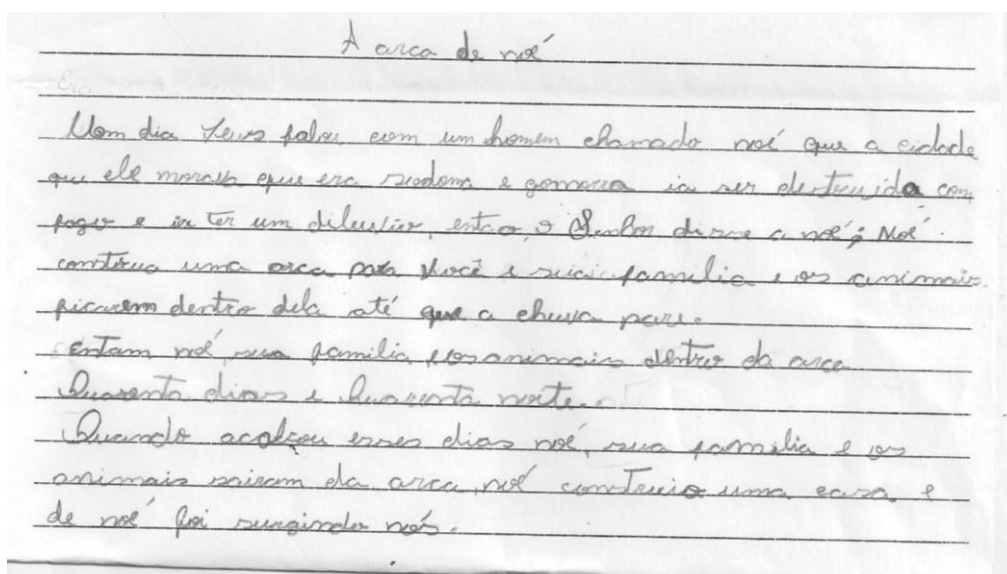 A arca de noé
Um dia Deus falou com um homem chamado noé que a cidade
que ele morava que era sodoma e gomorra ia ser destruida com
fogo e ia ter um diluvio, então, o Senhor disse a noé; Noé
contrua uma arca para você e sua familia e os animais
ficarem dentro dela até que a chuva pare.
entam noé, sua familia e os animais dentro da arca
Quarenta dias e Quarenta noite.
Quando acabou esses dias noé, sua familia e os
animais sairam da arca, noé construio uma casa e
de noé foi surgindo nós.